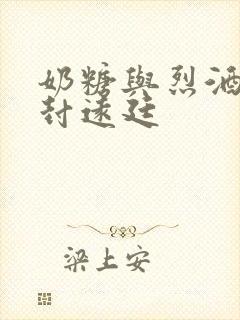 奶糖與烈酒
封遠廷
梁上安